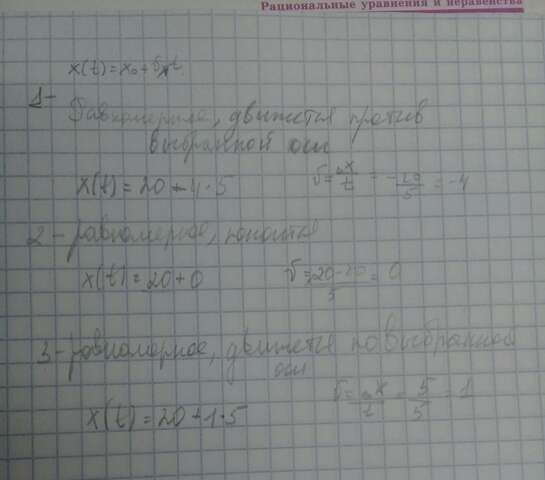 Рациональные уравнения и неравенства
x(t) = x₀ + υₓt
1-
Равномерное, движется против
выбранной оси
x(t) = 20 - 4·5 υ = Δx/t = -20/5 = -4
2 - равномерное,
x(t) = 20 + 0 υ = 20-20/5 = 0
3 - равномерное, движется по выбранной
оси
x(t) = 20 + 1·5 υ = Δx/t = 5/5 = 1